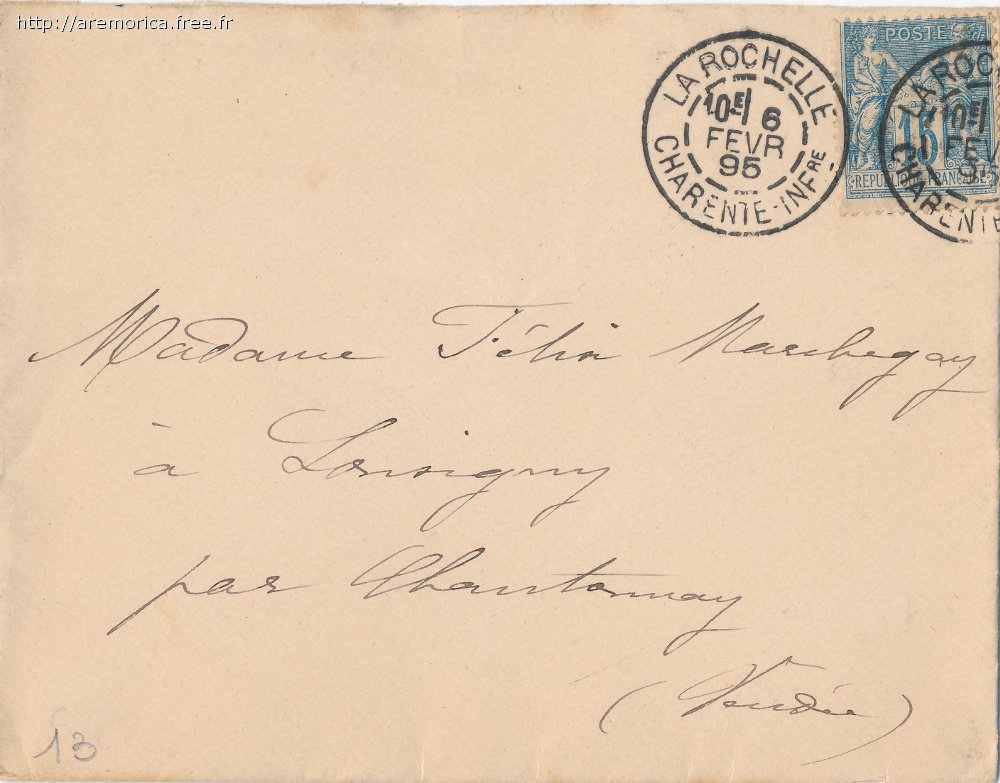 http://aremorica.free.fr
LA ROCHELLE
10E 6
FEVR
95
CHARENTE-INFRE
POSTE
15
REPUBLIQUE FRANÇAISE
LA ROC
10E
FEV
95
CHARENTE
Madame Félix Marchegay
à Lousigny
par Chantonnay
(Vendée)
13